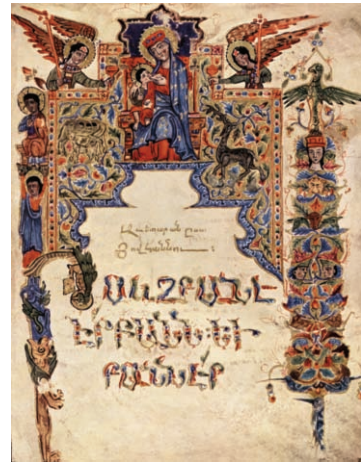 Աւետարան ըստ
Յովհաննու։
Ի սկզբանէ
էր բանն եւ
բանն էր